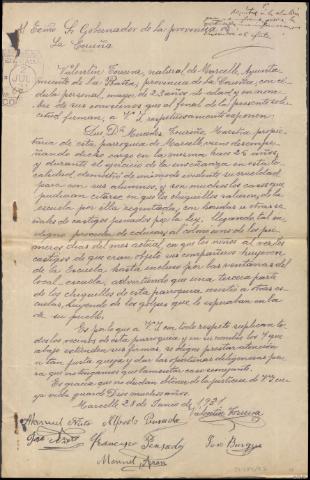 Al Excmo Sr Gobernador de la provincia de
La Coruña
Valentín Ferreira, natural de Marcelle, Ayunta-
miento de La Baña, provincia de La Coruña, con cé-
dula personal, mayor de 23 años de edad y en nom-
bre de sus convecinos que al final de la presente soli-
citud firman, a V. I. respetuosamente exponen:
Que Dª Mercedes Maestra propie-
taria de esta parroquia de Marcelle, viene desempe-
ñando dicho cargo en la misma hace 25 años,
y durante el ejercicio de la enseñanza en esta lo-
calidad, demostró de un modo evidente su crueldad
para con sus alumnos, y son muchos los casos que
pudieran citarse en que los chiquillos salieron de la
escuela por ella regentada, con heridas u otras se-
ñales de castigos penados por la ley. Llegando tal in-
digno proceder de educar, al colmo en los de los pri-
meros días del mes actual, en que los niños al ver los
castigos de que eran objeto sus compañeros huyeron
de la Escuela hasta incluso por las ventanas del
local-escuela, advirtiendo que una tercera parte
de los chiquillos de esta parroquia asiste a otras es-
cuelas, huyendo de los golpes que le esperaban en la
de su pueblo.
Es por lo que a V. I. con todo respeto suplican to-
dos los vecinos de esta parroquia y en su nombre los que
abajo extienden sus firmas se digne prestar atención
a tan justa queja y dar las oportunas diligencias pa-
ra que no tengamos que lamentar caso semejante.
Es gracia que no dudan obtener de la justicia de V. I. cu-
ya vida guarde Dios muchos años.
Marcelle 23 de Junio de 1931
Manuel Nieto Alfredo Pensado Valentín Ferreira
José Nieto Francisco Pensado José
Manuel